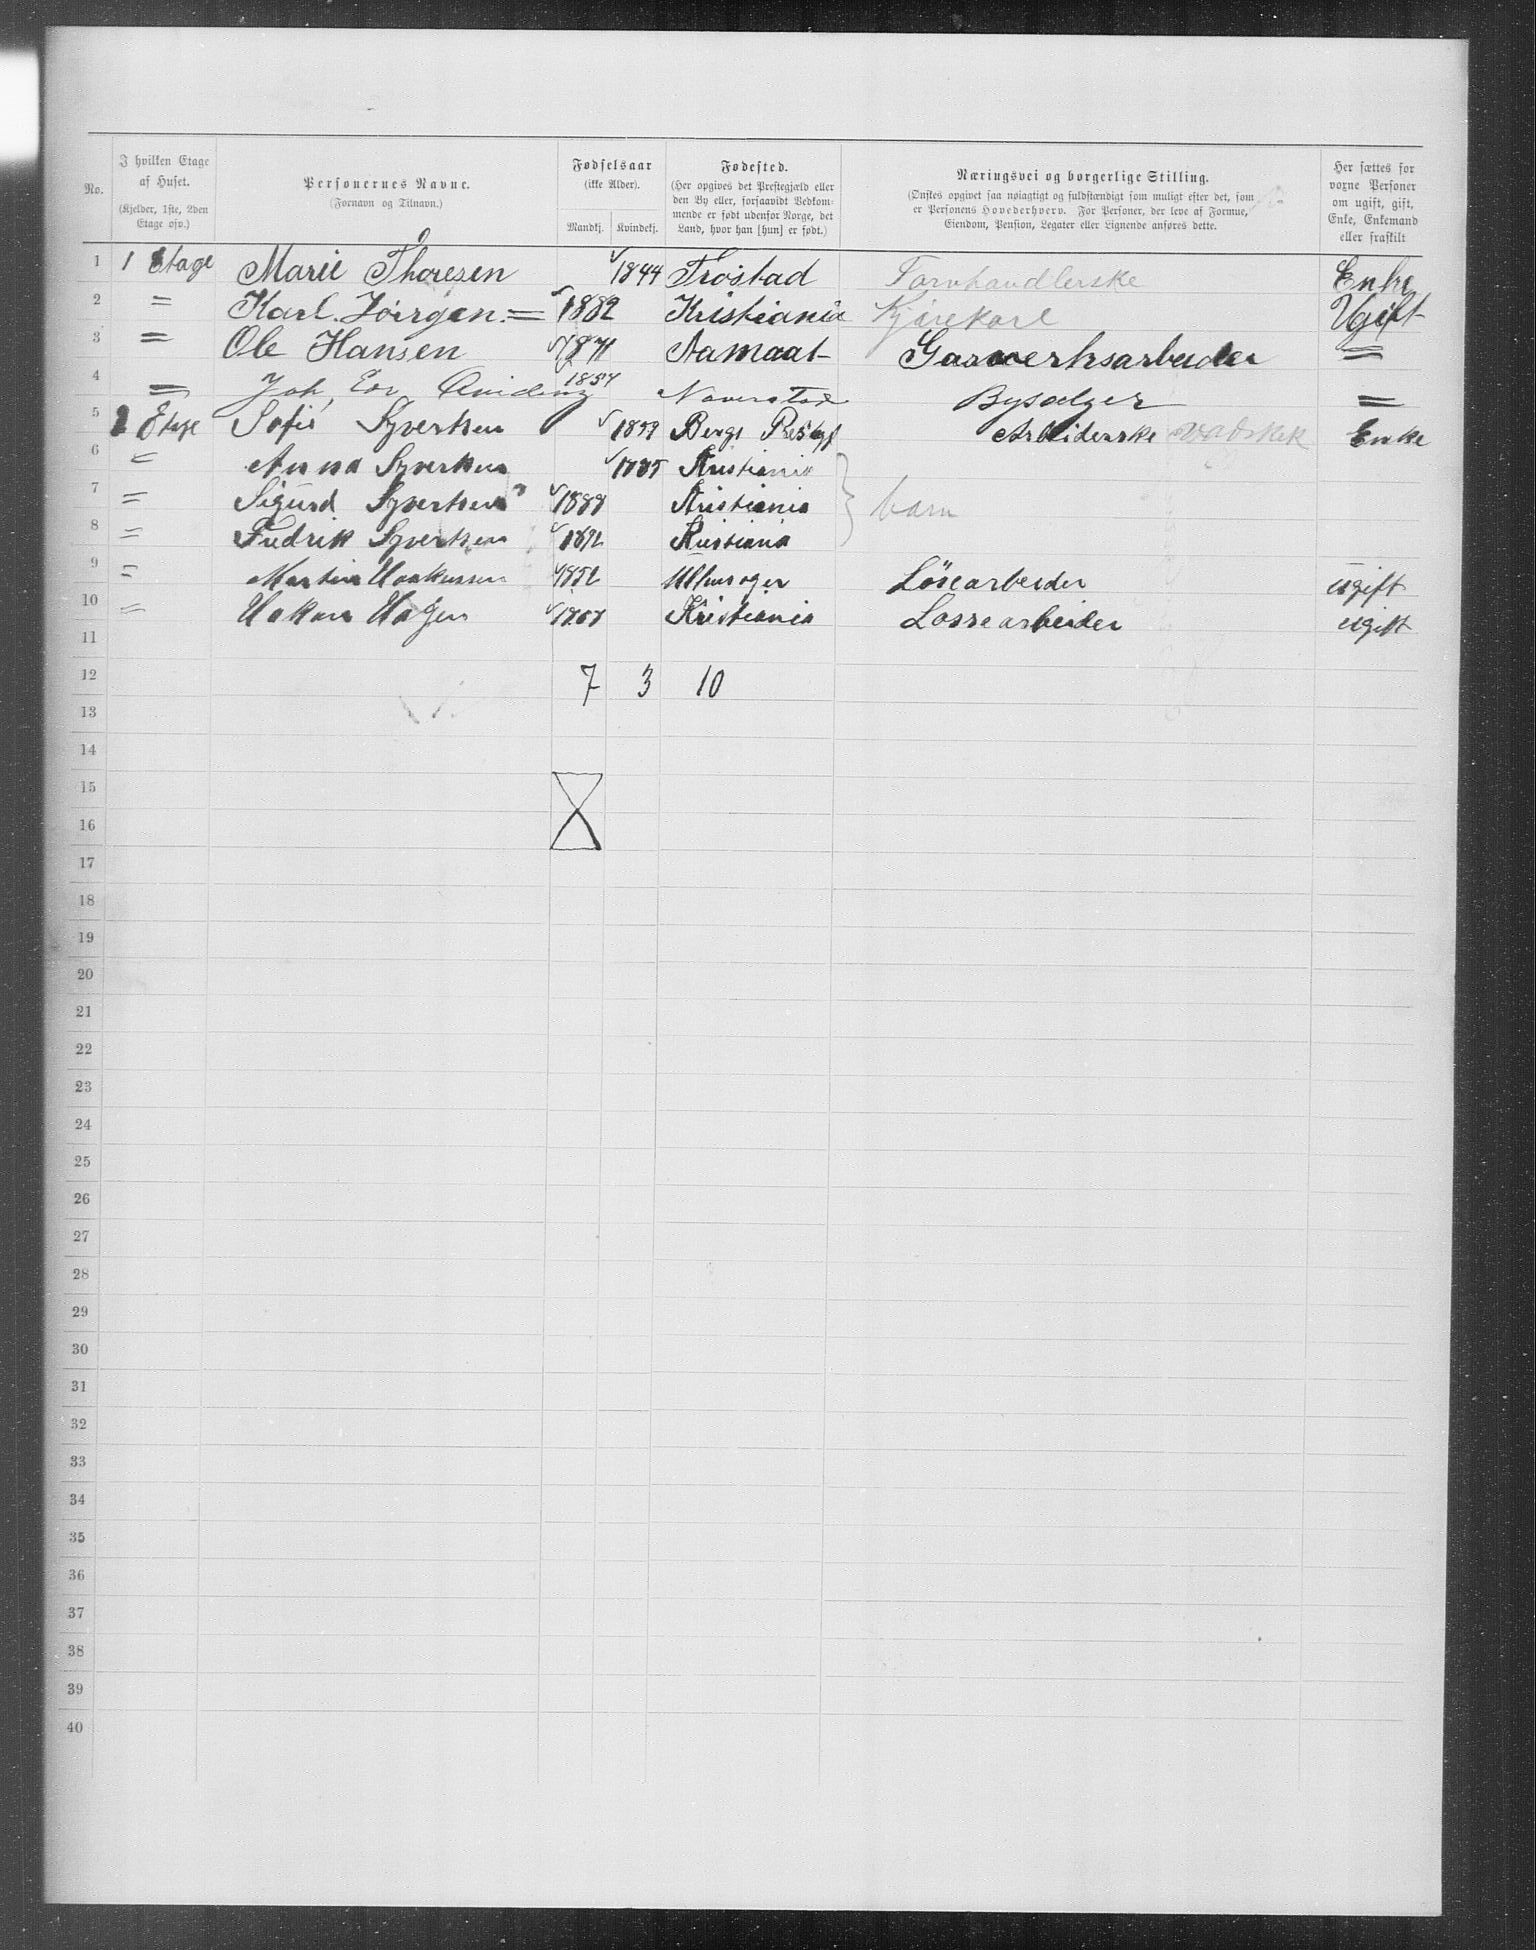 No.
I hvilken Etage af Huset. (Kjelder, 1ste, 2den Etage osv.)
Personernes Navne. (Fornavn og Tilnavn.)
Fødselsaar (ikke Alder). Mandkj. Kvindekj.
Fødested. (Her opgives det Prestegjæld eller den By eller, forsaavidt Vedkommende er født udenfor Norge, det Land, hvor han [hun] er født.)
Næringsvei og borgerlige Stilling. (Ønskes opgivet saa nøiagtigt og fuldstændigt som muligt efter det, som er Personens Hovederhverv. For Personer, der leve af Formue, Eiendom, Pension, Legater eller Lignende anføres dette.
Her sættes for voxne Personer om ugift, gift, Enke, Enkemand eller fraskilt
1 1 Etage Marie Thoresen 1844 Trøstad Enke
2 = Karl Jørgen = 1882 Kristiania Kjørekarl Ugift
3 = Ole Hansen 1871 Aamaat Gasverksarbeider =
4 = Joh, Edv 1857 Bysælger =
5 Etage Sofie Syvertsen 1859 Bergs Arbeiderske Enke
6 = Anna Syvertsen 1885 Kristiania
7 = Sigurd Syvertsen 1888 Kristiania barn
8 = Fredrik Syvertsen 1892 Kristiania
9 = Martin Haakensen 1852 Løsearbeider ugift
10 = Hakon Hagen Kristiania Løssearbeider ugift
11
12 7 3 10
13
14
15
16
17
18
19
20
21
22
23
24
25
26
27
28
29
30
31
32
33
34
35
36
37
38
39
40